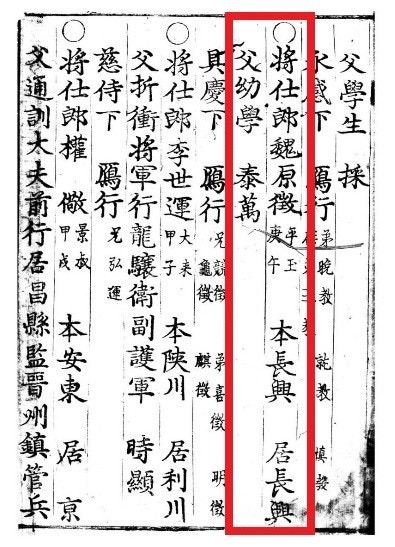 父學生 採
永感下 鴈行 弟晩敎
○將仕郎魏原徵 平玉 庚午 本長興 居長興
父幼學 泰萬
具慶下 鴈行 兄兢徵 龜徵 弟喜徵 麒徵 明徵
○將仕郎李世運 大來 甲子 本陜川 居利川
父折衝將軍行龍驤衛副護軍 時顯
慈侍下 鴈行 兄弘運
○將仕郎權 儆 景叔 甲戌 本安東 居京
父通訓大夫前行居昌縣監晉州鎮管兵